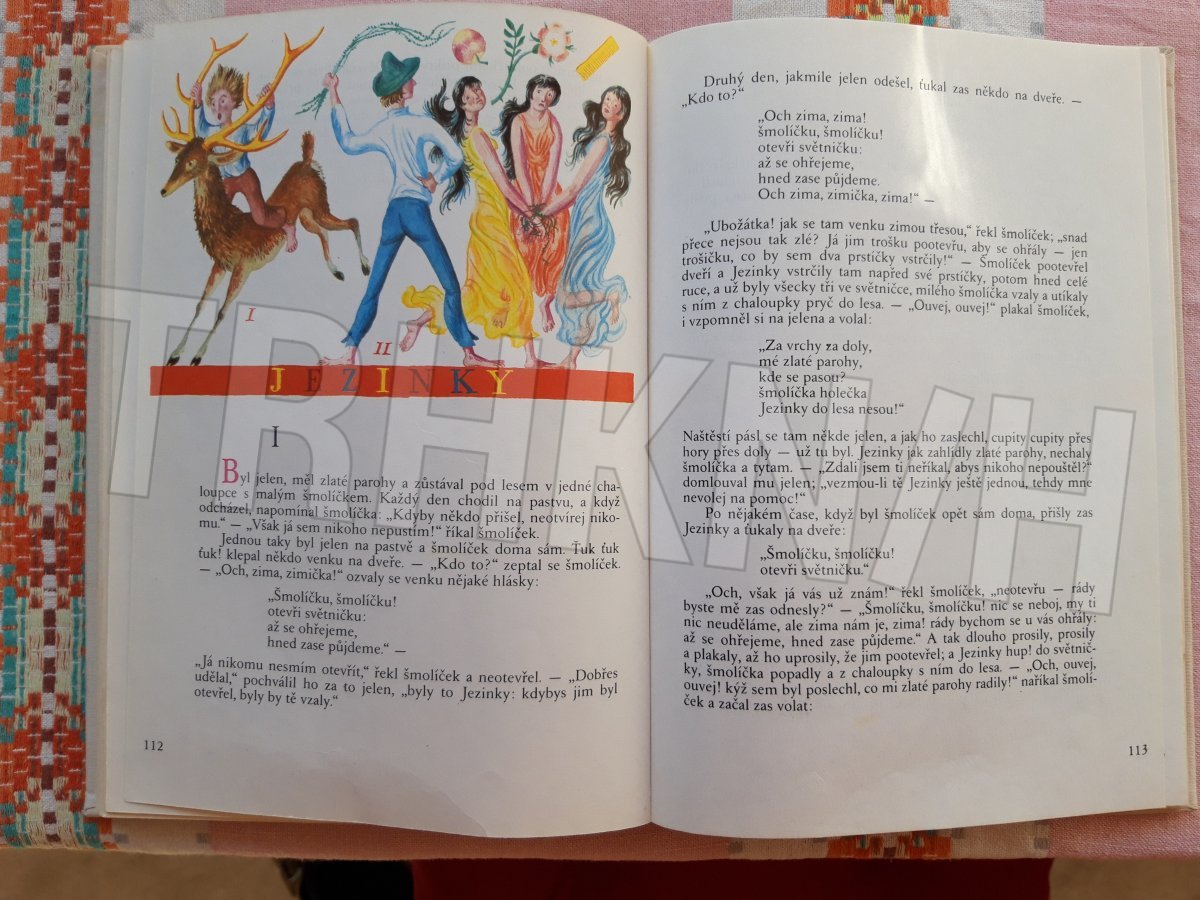 I
II
JEZINKY
I
Byl jelen, měl zlaté parohy a zůstával pod lesem v jedné cha-
loupce s malým šmolíčkem. Každý den chodil na pastvu, a když
odcházel, napomínal šmolíčka: „Kdyby někdo přišel, neotvírej niko-
mu.“ — „Však já sem nikoho nepustím!“ říkal šmolíček.
Jednou taky byl jelen na pastvě a šmolíček doma sám. Ťuk ťuk
ťuk! klepal někdo venku na dveře. — „Kdo to?“ zeptal se šmolíček.
— „Och, zima, zimička!“ ozvaly se venku nějaké hlásky:
„Šmolíčku, šmolíčku!
otevři světničku:
až se ohřejeme,
hned zase půjdeme.“ —
„Já nikomu nesmím otevřít,“ řekl šmolíček a neotevřel. — „Dobřes
udělal,“ pochválil ho za to jelen, „byly to Jezinky: kdybys jim byl
otevřel, byly by tě vzaly.“
112
Druhý den, jakmile jelen odešel, ťukal zas někdo na dveře. —
„Kdo to?“
„Och zima, zima!
šmolíčku, šmolíčku!
otevři světničku:
až se ohřejeme,
hned zase půjdeme.
Och zima, zimička, zima!“ —
„Ubožátka! jak se tam venku zimou třesou,“ řekl šmolíček; „snad
přece nejsou tak zlé? Já jim trošku pootevřu, aby se ohřály — jen
trošičku, co by sem dva prstíčky vstrčily!“ — Šmolíček pootevřel
dveří a Jezinky vstrčily tam napřed své prstíčky, potom hned celé
ruce, a už byly všecky tři ve světničce, milého šmolíčka vzaly a utíkaly
s ním z chaloupky pryč do lesa. — „Ouvej, ouvej!“ plakal šmolíček,
i vzpomněl si na jelena a volal:
„Za vrchy za doly,
mé zlaté parohy,
kde se pasou?
šmolíčka holečka
Jezinky do lesa nesou!“
Naštěstí pásl se tam někde jelen, a jak ho zaslechl, cupity cupity přes
hory přes doly — už tu byl. Jezinky jak zahlídly zlaté parohy, nechaly
šmolíčka a tytam. — „Zdali jsem ti neříkal, abys nikoho nepouštěl?“
domlouval mu jelen; „vezmou-li tě Jezinky ještě jednou, tehdy mne
nevolej na pomoc!“
Po nějakém čase, když byl šmolíček opět sám doma, přišly zas
Jezinky a ťukaly na dveře:
„Šmolíčku, šmolíčku!
otevři světničku.“
„Och, však já vás už znám!“ řekl šmolíček, „neotevřu — rády
byste mě zas odnesly?“ — „Šmolíčku, šmolíčku! nic se neboj, my ti
nic neuděláme, ale zima nám je, zima! rády bychom se u vás ohřály:
až se ohřejeme, hned zase půjdeme.“ A tak dlouho prosily, prosily
a plakaly, až ho uprosily, že jim pootevřel; a Jezinky hup! do světnič-
ky, šmolíčka popadly a z chaloupky s ním do lesa. — „Och, ouvej,
ouvej! kýž sem byl poslechl, co mi zlaté parohy radily!“ naříkal šmolí-
ček a začal zas volat:
113
TRHKNIH